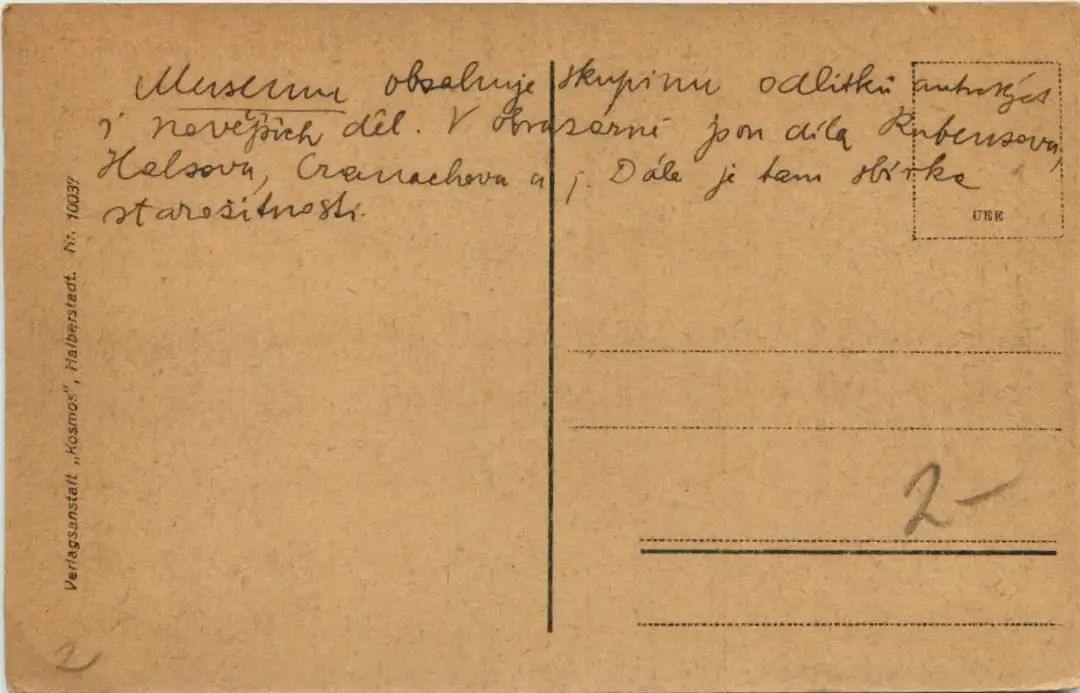 Museum obsahuje skupinu odlitků antických
i novějších děl. V obrazárně jsou díla Rubensova,
Halsova, Cranachova a j. Dále je tam sbírka
starožitností.
UEE
2-
Verlagsanstalt „Kosmos", Halberstadt. Nr. 10037
2